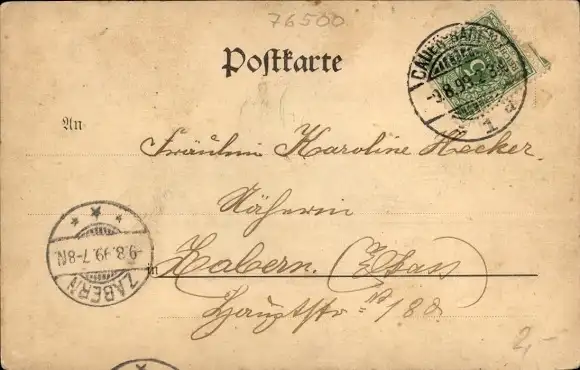 76500
Postkarte
-9.8.99.2-3N
An
Fräulein Karoline Hecker.
Näherin
in Zabern. Elsass
Hauptstr. No 188.
9.8.99.7-8N.
ZABERN
2,-